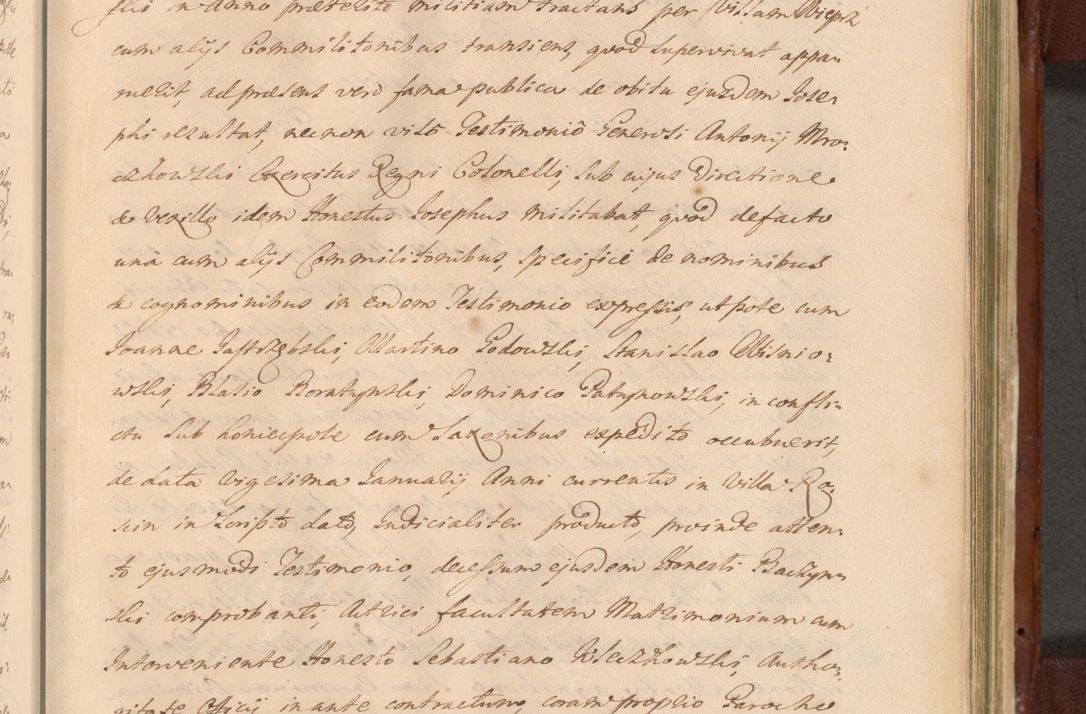 ski in Anno præterito militiam tractans per Villam Wieprz
cum alijs Commilitonibus transiens, quod supervivat appa=
ruerit, ad præsens verò fama publica de obitu ejusdem Jose=
phi rezultat, necnon visô Testimoniô Generosi Antonij Mro=
czkowski Exercitus Regni Colonelli, sub cujus Directione
& Vexillo idem Honestus Josephus militabat, quod defacto
unà cum alijs Commilitonibus, specificè de nominibus
& cognominibus in eodem Testimonio expressis, utpote cum
Joanne Jastrzębski, Martino Godowski, Stanislao Wisnio=
wski, Blasio Boratynski, Dominico Patynowski, in confli=
ctu sub Koniecpole cum Saxonibus expedito occubuerit,
de data Vigesima Januarij Anni currentis in Villa Ro=
in Scripto datô, Judicialiter productô, proinde atten=
to ejusmodi Testimonio, decessum ejusdem Honesti Baczyn=
ski comprobanti, Actrici facultatem Matrimonium cum
Interveniente Honesto Sebastiano Autho=
ritate Officij inante contractum, coram proprio Parocho